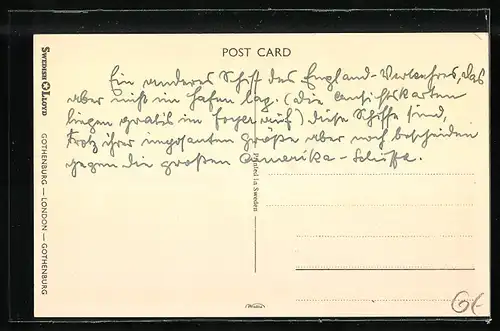 POST CARD
Ein anderes Schiff des England-Verkehres, das
aber nicht im Hafen lag. (Die Ansichtskarten
liegen gratis im Foyer auf) Diese Schiffe sind,
trotz ihrer imposanten Größe aber noch bescheiden
gegen die großen Amerika-Schiffe.
SWEDISH LLOYD
GOTHENBURG — LONDON — GOTHENBURG
Printed in Sweden